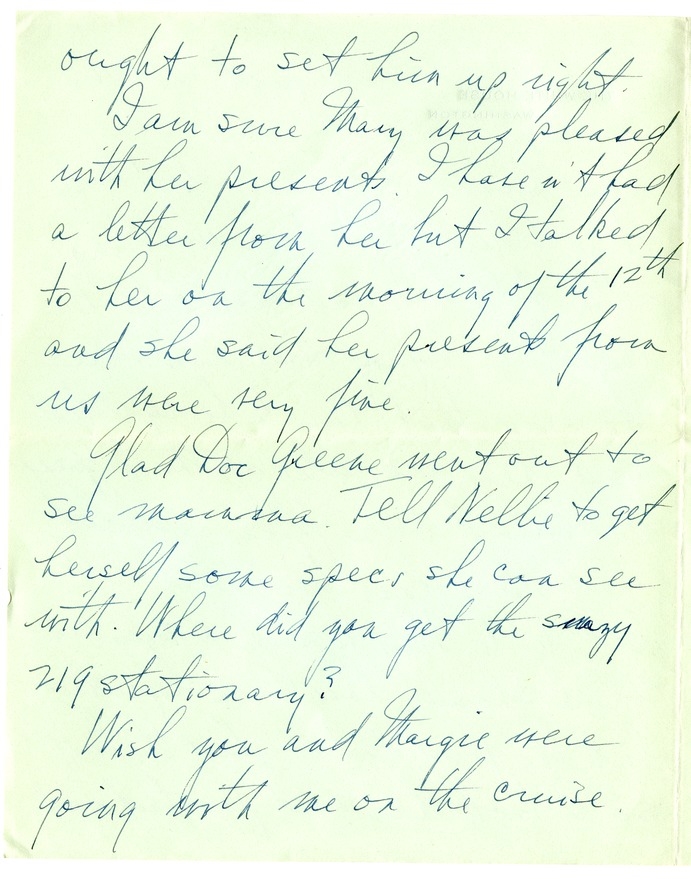 ought to set him up right.
I am sure Mary was pleased
with her presents. I have n't had
a letter from her but I talked
to her on the morning of the 12th
and she said her presents from
us were very fine.
Glad Doc Greene went out to
see mamma. Tell Nellie to get
herself some specs she can see
with. Where did you get the snazy
219 stationary?
Wish you and Margie were
going with me on the cruise.